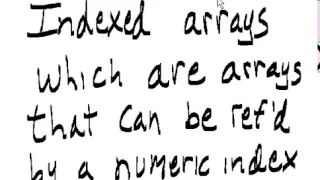 Indexed arrays
which are arrays
that can be ref'd
by a numeric index